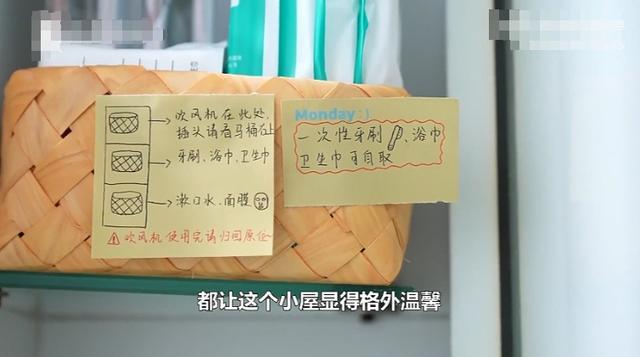 吹风机在此处,
插头请看马桶左上
牙刷、浴巾、卫生巾
漱口水、面膜
吹风机使用完请归回原位
Monday:)
一次性牙刷、浴巾
卫生巾可自取
都让这个小屋显得格外温馨